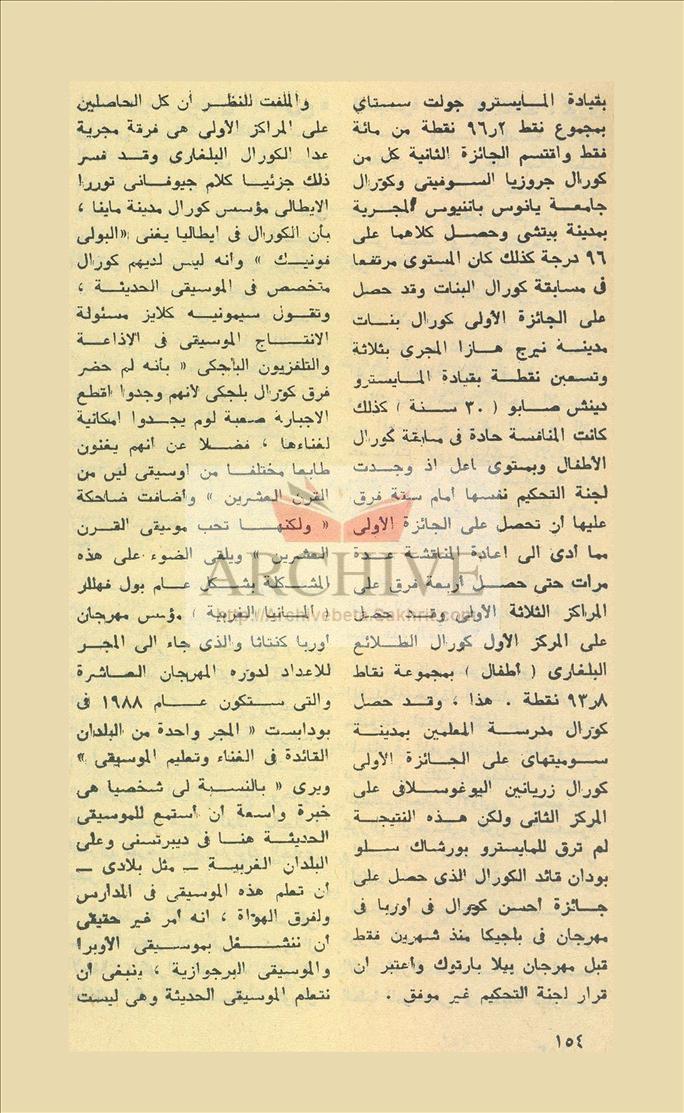 بقيادة المايسترو جولت سستاي
بمجموع نقط ٩٦٫٢ نقطة من مائة
فقط واقتسم الجائزة الثانية كل من
كورال جروزيا السوفيتى وكورال
جامعة يانوس باتنيوس المجرية
بمدينة بيتشى وحصل كلاهما على
٩٦ درجة كذلك كان المستوى مرتفعا
فى مسابقة كورال البنات وقد حصل
على الجائزة الأولى كورال بنات
مدينة نيرج هازا المجرى بثلاثة
وتسعين نقطة بقيادة المايسترو
دينش صابو ( ٣٠ سنة ) كذلك
كانت المنافسة حادة فى مسابقة كورال
الأطفال وبمستوى اعل اذ وجدت
لجنة التحكيم نفسها أمام ستة فرق
عليها أن تحصل على الجائزة الأولى
مما أدى الى اعادة المناقشة عدة
مرات حتى حصل أربعة فرق على
المراكز الثلاثة الأولى وقد حصل
على المركز الأول كورال الطلائع
البلغارى ( أطفال ) بمجموعة نقاط
٩٣٫٨ نقطة . هذا ، وقد حصل
كورال مدرسة المعلمين بمدينة
سوميتهاى على الجائزة الأولى
كورال زريانين اليوغوسلافى على
المركز الثانى ولكن هذه النتيجة
لم ترق للمايسترو بورشاك سلو
بودان قائد الكورال الذى حصل على
جائزة أحسن كورال فى أوربا فى
مهرجان فى بلجيكا منذ شهرين فقط
قبل مهرجان بيلا بارتوك واعتبر ان
قرار لجنة التحكيم غير موفق .
والملفت للنظر أن كل الحاصلين
على المراكز الأولى هى فرقة مجرية
عدا الكورال البلغارى وقد فسر
ذلك جزئيا كلام جيوفانى توررا
الايطالى مؤسس كورال مدينة ماينا ،
بأن الكورال فى ايطاليا يغنى «البولى
فونيك » وانه ليس لديهم كورال
متخصص فى الموسيقى الحديثة ،
وتقول سيمونيه كلايز مسئولة
الانتاج الموسيقى فى الاذاعة
والتلفزيون البلجكى « بأنه لم حضر
فرق كورال بلجكى لأنهم وجدوا القطع
الاجبارة صعبة لوم يجدوا امكانية
لغناءها ، فضلا عن انهم يغنون
طابعا مختلفا من اوسيقى ليس من
القرن العشرين » واضافت ضاحكة
« ولكنها تحب موسيقى القرن
العشرين » ويلقى الضوء على هذه
المشكلة بشكل عام بول فهللر
( المانيا الغربية ) مؤسس مهرجان
أوربا كنتاتا والذى جاء الى المجر
للاعداد لدوره المهرجان العاشرة
والتى ستكون عام ١٩٨٨ فى
بودابست « المجر واحدة من البلدان
القائدة فى الغناء وتعليم الموسيقى »
ويرى « بالنسبة لى شخصيا هى
خبرة واسعة أن أستمع للموسيقى
الحديثة هنا فى ديبرتسنى وعلى
البلدان الغربية – مثل بلادى –
أن تعلم هذه الموسيقى فى المدارس
ولفرق الهواة ، انه أمر غير حقيقى
أن ننشغل بموسيقى الأوبرا
والموسيقى البرجوازية ، ينبغى أن
نتعلم الموسيقى الحديثة وهى ليست
١٥٤
ARCHIVE
http://archivebeta.Sakhrit.com